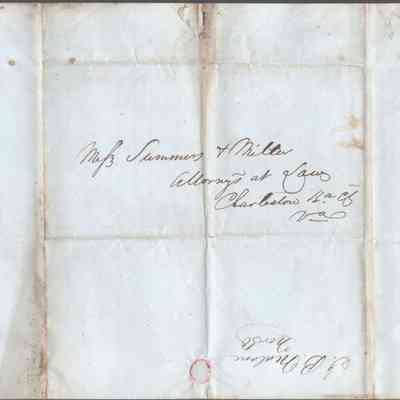 Messrs Summers & Miller
Attorneys at Law
Charleston Ka Ct
Va
J. B.